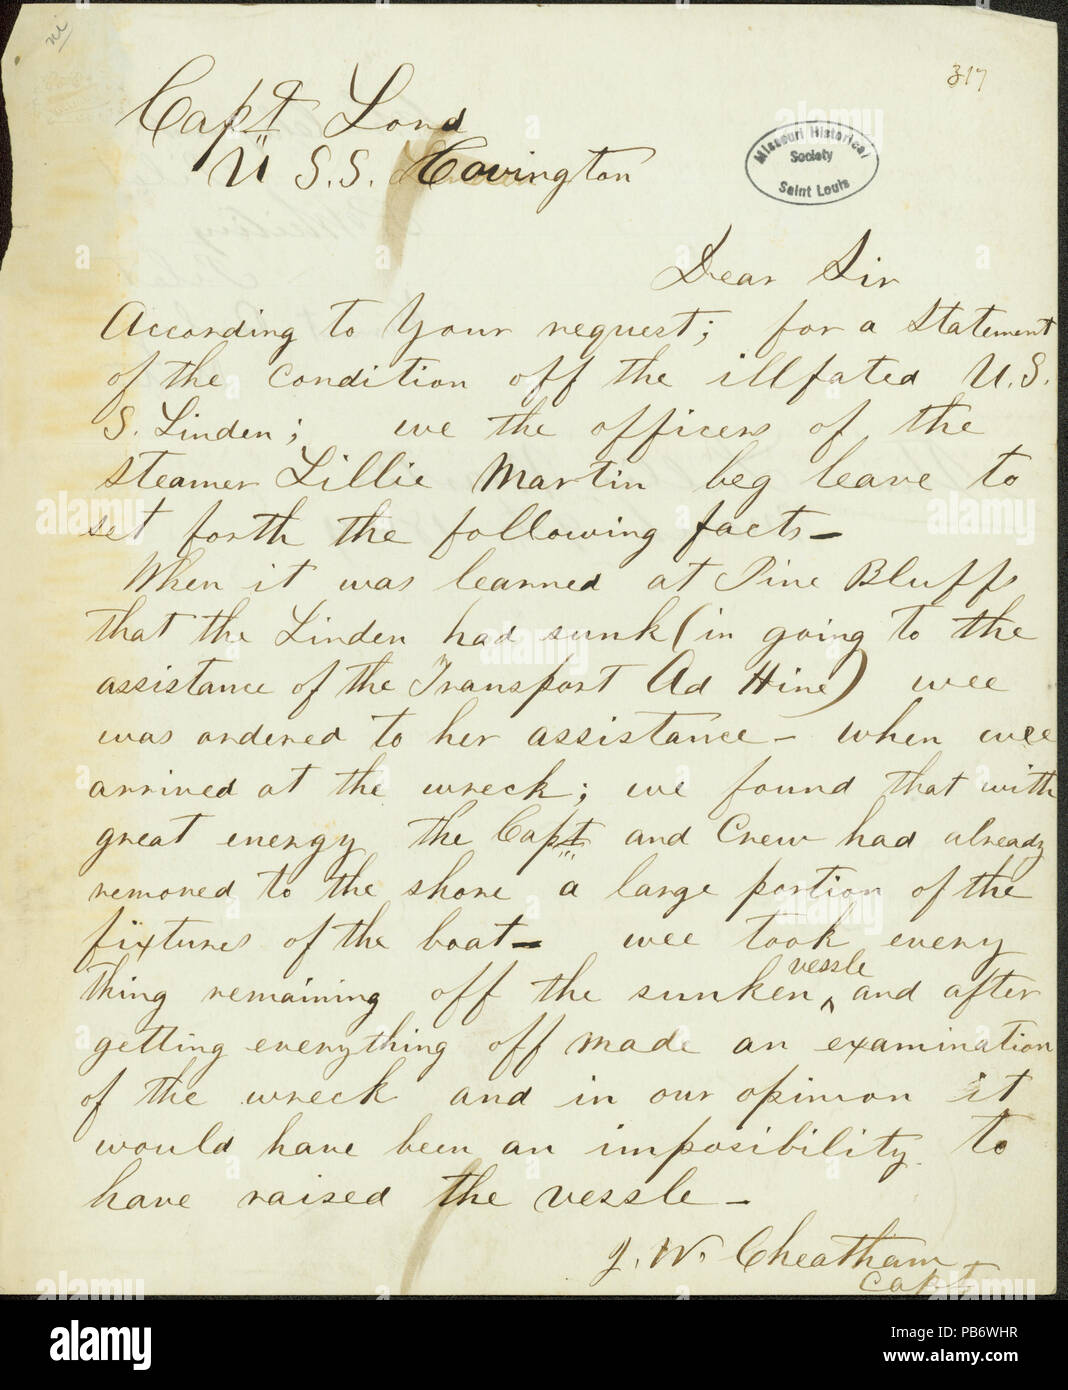 317
Capt Lord
U S. S. Covington
Missouri Historical
Society
Saint Louis
Dear Sir
According to Your request; for a Statement
of the condition off the illfated U. S.
S. Linden; we the officers of the
steamer Lillie Martin beg leave to
set forth the following facts—
When it was learned at Pine Bluffs
that the Linden had sunk (in going to the
assistance of the Transport Ad Hine) wee
was ordered to her assistance— when wee
arrived at the wreck; we found that with
great energy the Capt and Crew had already
removed to the shore a large portion of the
fixtures of the boat— wee took every
thing remaining off the sunken vessle and after
getting everything off made an examination
of the wreck and in our opinion it
would have been an imposibility to
have raised the vessle—
J. W. Cheatham
Capt
alamy
alamy
alamy
alamy
alamy
alamy
alamy
alamy
alamy
Image ID: PB6WHR
www.alamy.com